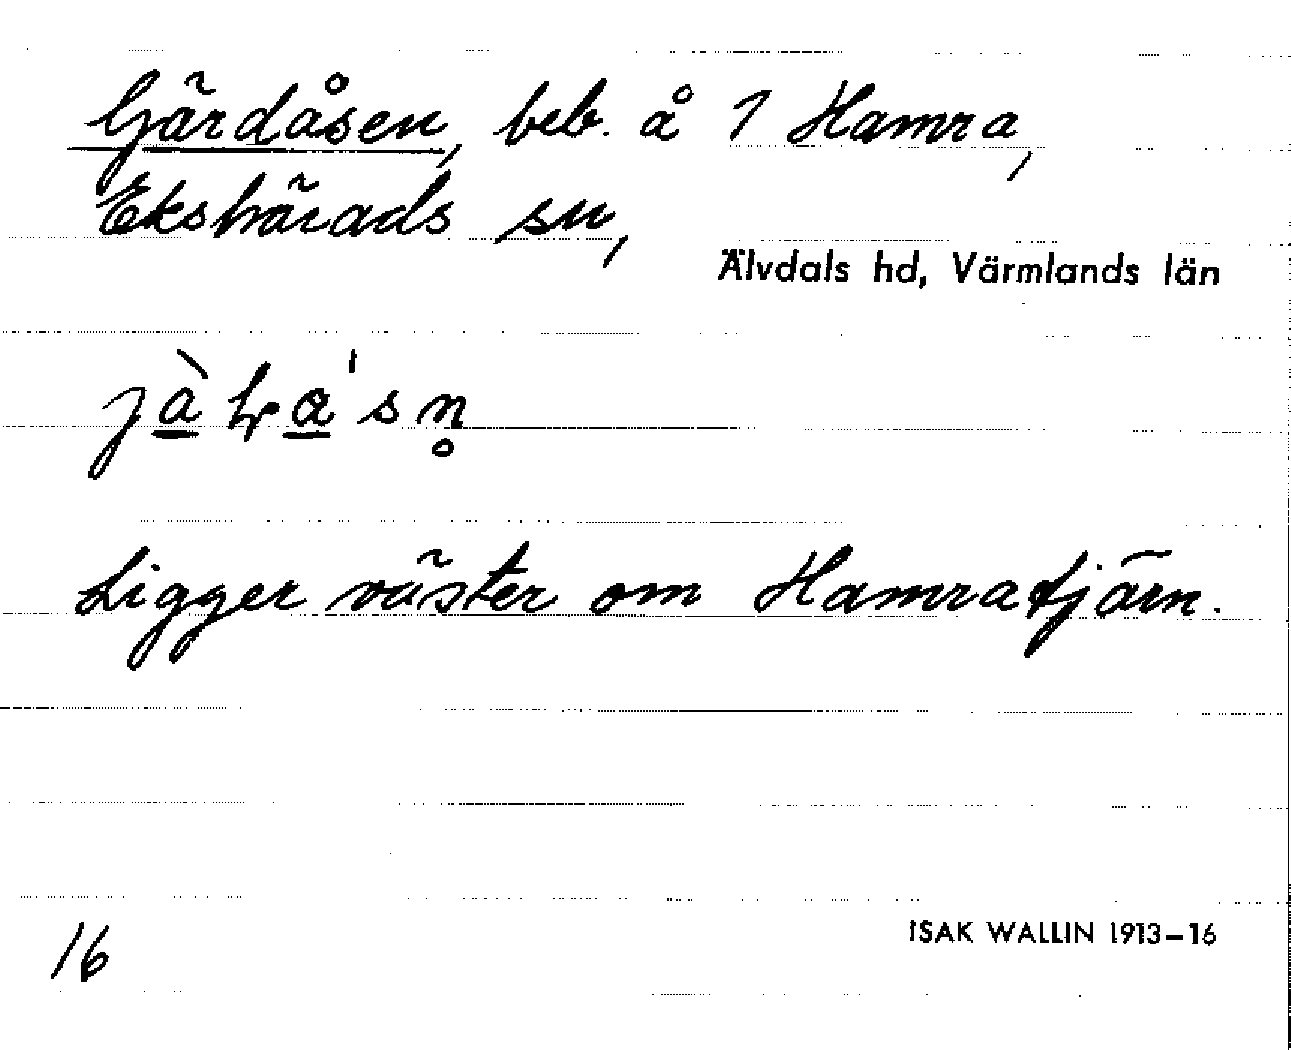 Gärdåsen, beb. å 1 Hamra,
Ekshärads sn,
Älvdals hd, Värmlands län
Ligger väster om Hamratjärn.
16
ISAK WALLIN 1913–16